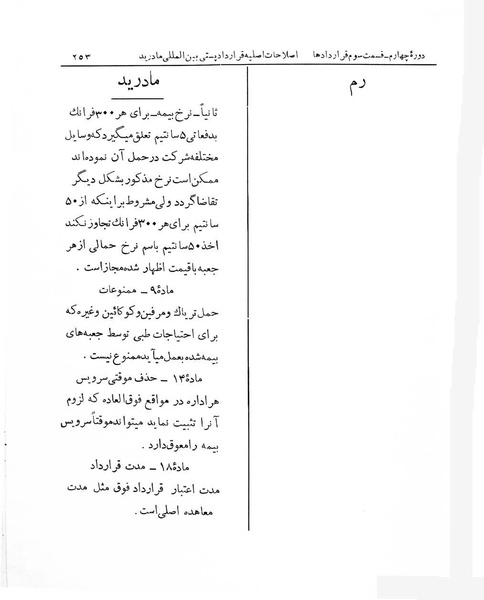 دورهٔ چهارم - قسمت سوم قراردادها   اصلاحات اصلیه قرارداد پستی بین المللی مادرید   ۲۵۳
رم
مادرید
ثانیاً - نرخ بیمه - برای هر ۳۰۰ فرانك
بدفعاتی ۵ سانتیم تعلق میگیرد که وسایل
مختلفه شرکت در حمل آن نموده‌اند
ممکن است نرخ مذکور بشکل دیگر
تقاضا گردد ولی مشروط بر اینکه از ۵۰
سانتیم برای هر ۳۰۰ فرانك تجاوز نکند
اخذ ۵۰ سانتیم باسم نرخ حمالی از هر
جعبه با قیمت اظهار شده مجاز است .
مادهٔ ۹ - ممنوعات
حمل تریاك ومرفین و کوکائین وغیره که
برای احتیاجات طبی توسط جعبه‌های
بیمه شده بعمل میآید ممنوع نیست .
مادهٔ ۱۴ - حذف موقتی سرویس
هر اداره در مواقع فوق العاده که لزوم
آنرا تثبیت نماید میتواند موقتاً سرویس
بیمه را معوق دارد .
مادهٔ ۱۸ - مدت قرارداد
مدت اعتبار قرارداد فوق مثل مدت
معاهده اصلی است .